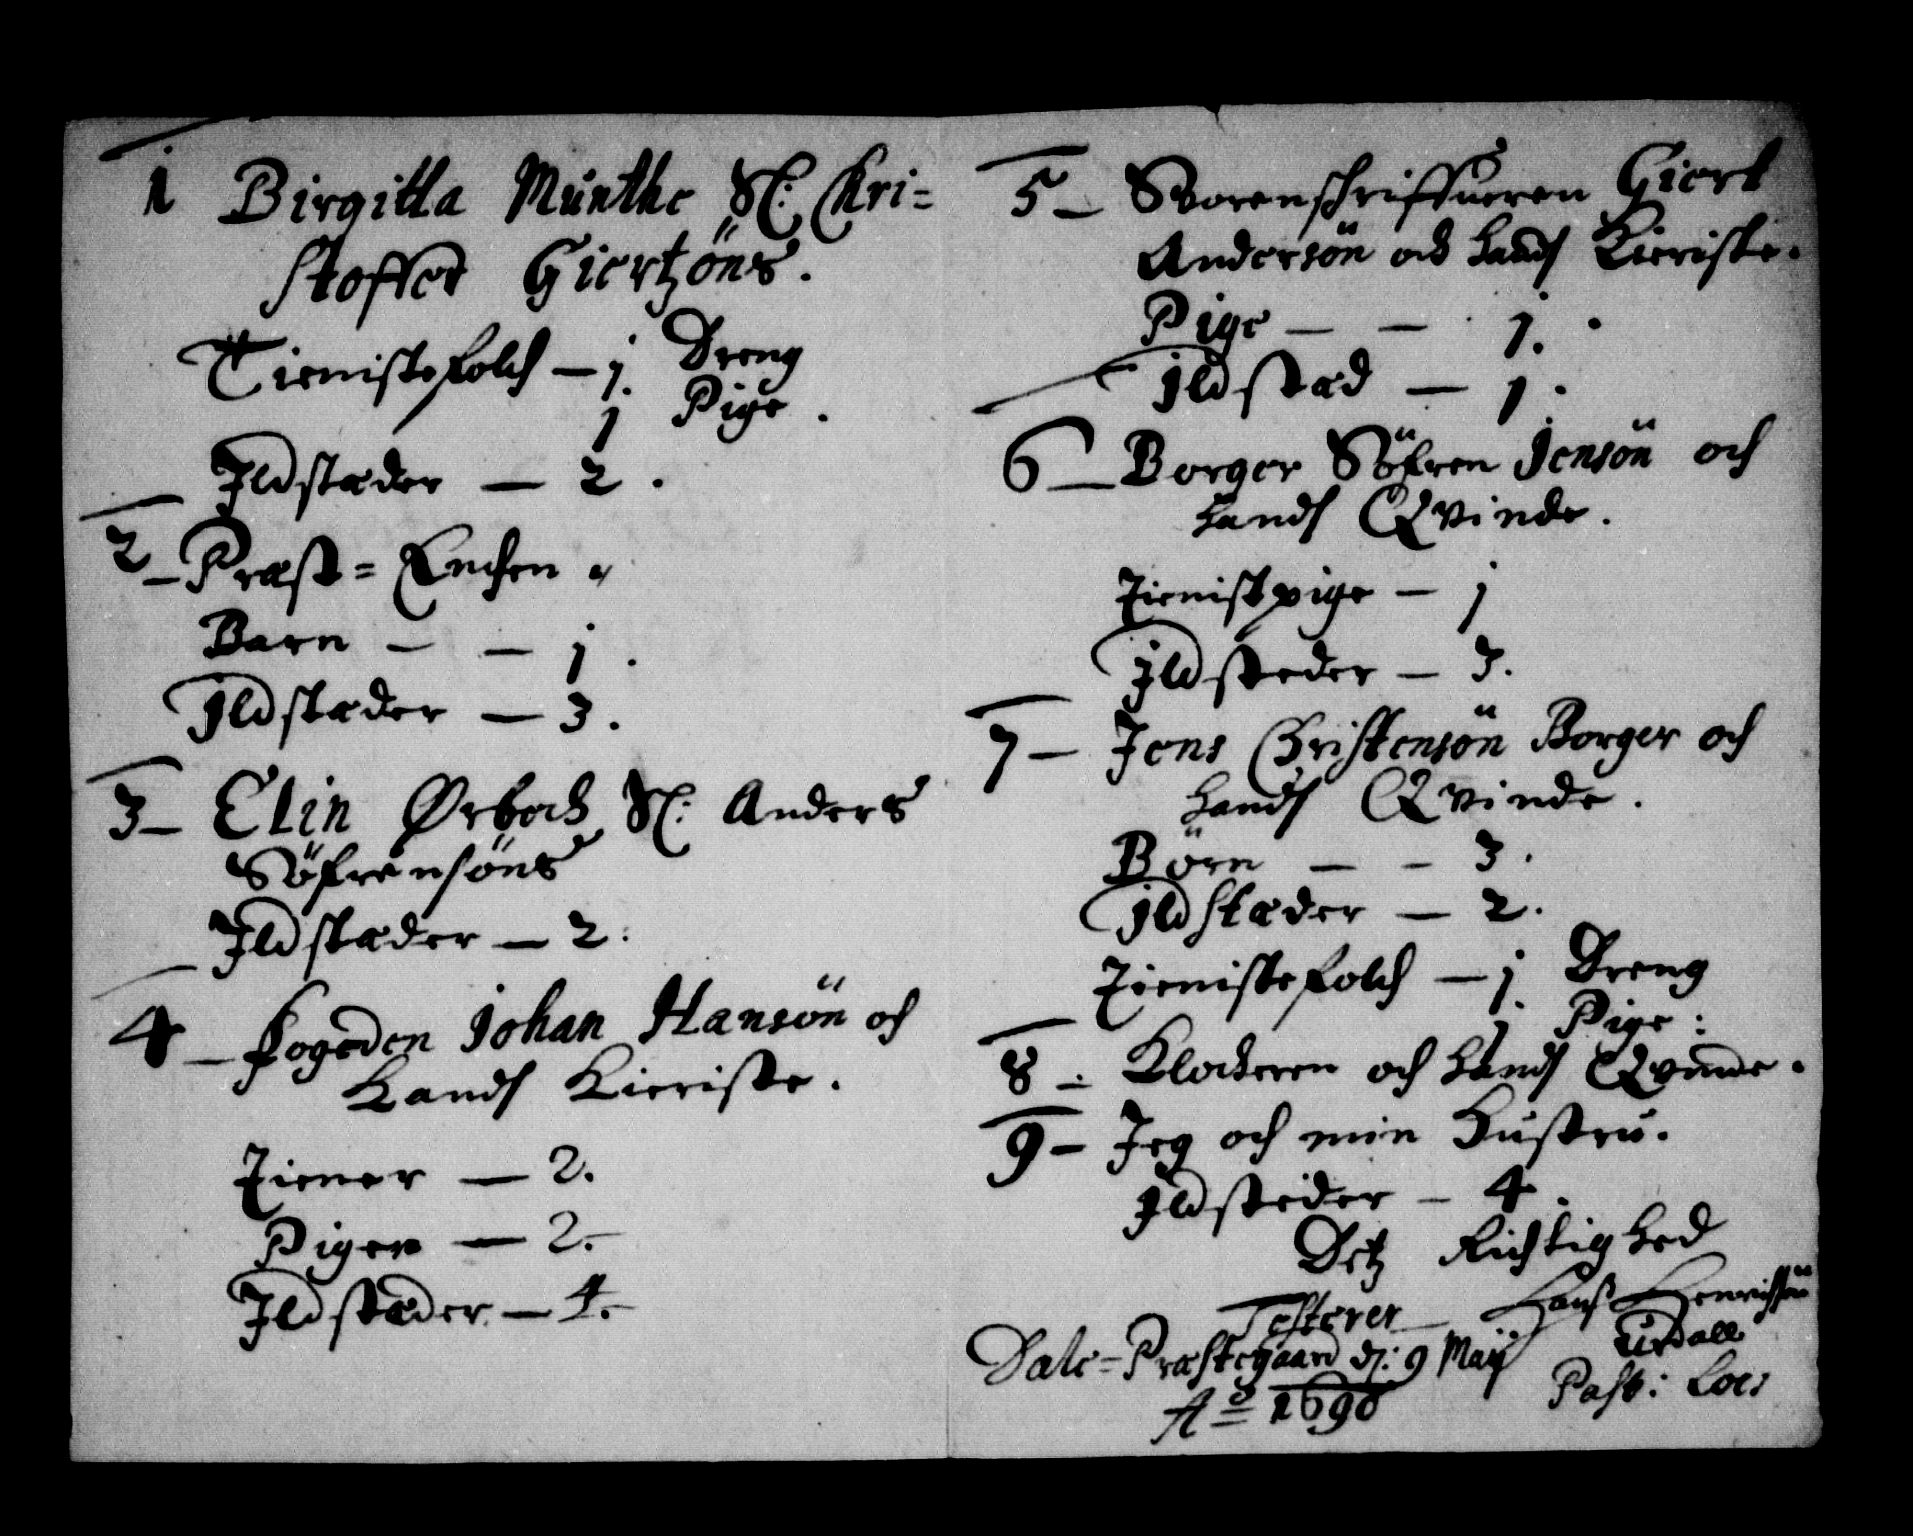 1 Birgitta Münthe Sl: Chri=
stoffer Giertzöns.
Tienistefolch — 1. Dreng
1 Pige.
Ildstæder — 2.
2 — Præst= Enchen.
Barn — — 1.
Ildstæder — 3.
3 — Elin Ørboch Sl: Anders
Söfrensöns
Ildstæder — 2.
4 — Fogeden Johan Hansön och
Hands Kieriste.
Tiener — 2.
Piger — 2.
Ildstæder — 4.
5 — Svorenschriffueren Giert
Andersön och hands Kieriste.
Pige — — 1.
Ildstæd — 1.
6 — Borger Söfren Jensön och
hands Qvinde.
Tienistpige — 1
Ildsteder — 3.
7 — Jens Christensön Borger och
hands Qvinde.
Börn — — 3.
Ildstæder — 2.
Tienistefolch — 1. Dreng
1 Pige:
8 — Klockeren och hands Qvinde.
9 — Jeg och min Hustru.
Ildsteder — 4.
Detz Richtighed
Testerer Hans Henrichsön
Dale=Præstegaard d: 9 Maij Urdall
Ao 1690 Past: Loci